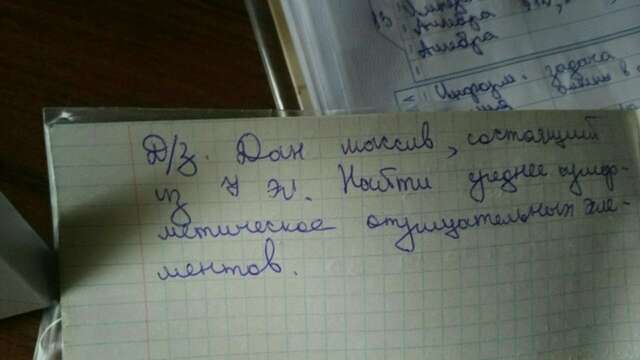 Алгебра
Алгебра
Информ. задача
Д/З. Дан массив, состоящий
из 7 эл. Найти среднее арифме-
метическое отрицательных эле-
ментов.